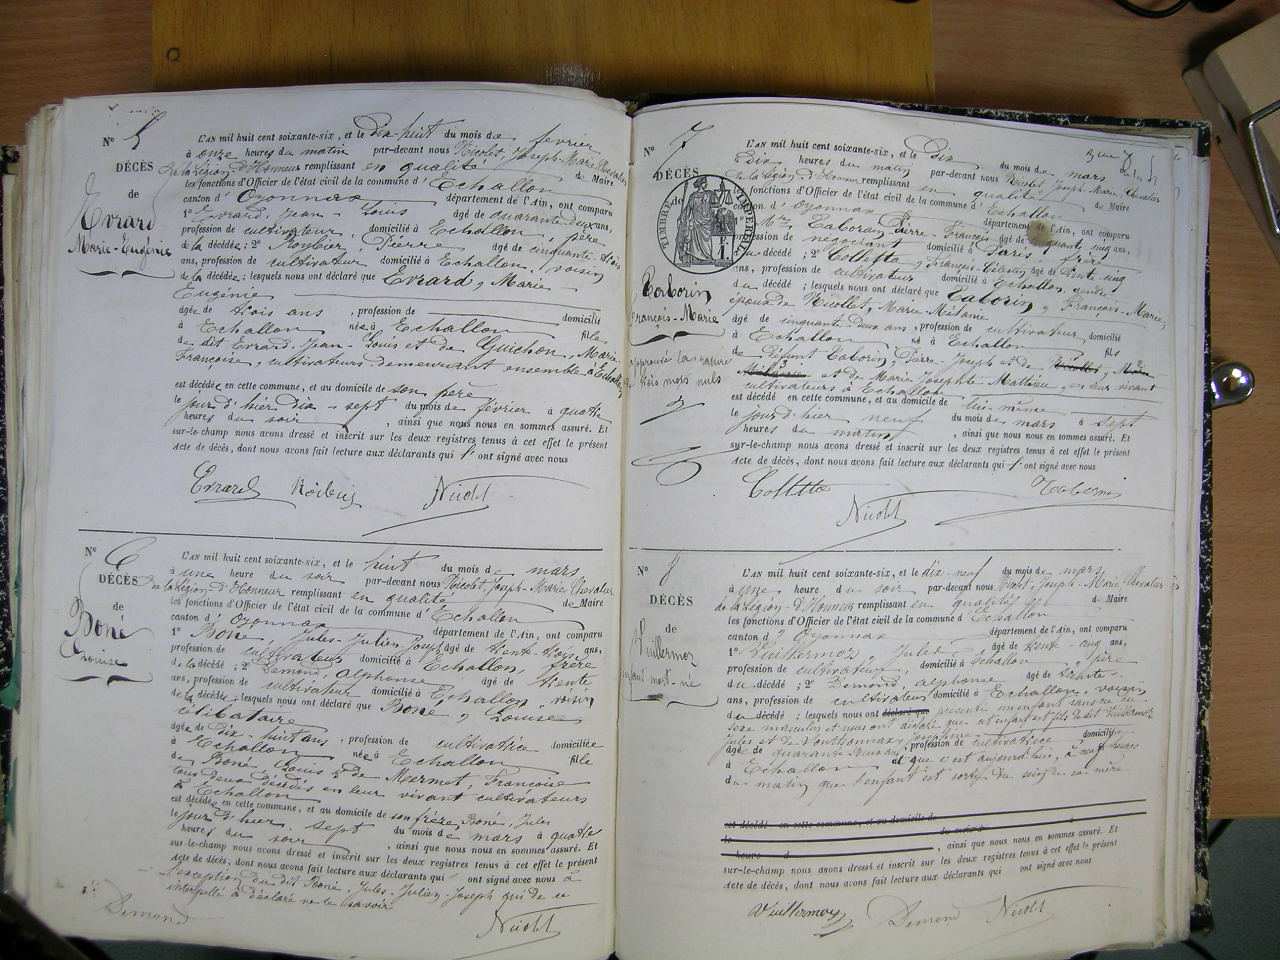 N° 5
DÉCÈS
de
Evrard
Marie-Eugénie
L'AN mil huit cent soixante-six, et le dix huit du mois de février
à onze heures du matin par-devant nous Nicolet, Joseph-Marie Chevalier
de la Légion-d'Honneur remplissant en qualité de Maire
les fonctions d'Officier de l'état civil de la commune d'Echallon
canton d'Oyonnax département de l'Ain, ont comparu
1° Evrard, Jean-Louis âgé de quarante deux ans,
profession de cultivateur, domicilié à Echallon, père
de la décédée; 2° Roybier, Pierre âgé de cinquante-trois
ans, profession de cultivateur domicilié à Echallon, voisin
de la décédée; lesquels nous ont déclaré que Evrard, Marie-
Eugénie
âgée de trois ans, profession de domicilié
à Echallon née à Echallon fille
de dit Evrard Jean-Louis et de Guichon, Marie-
Françoise, cultivateurs demeurant ensemble à Echallon
est décédée en cette commune, et au domicile de son père
le jour d'hier dix-sept du mois de février à quatre
heures du soir, ainsi que nous nous en sommes assuré. Et
sur-le-champ nous avons dressé et inscrit sur les deux registres tenus à cet effet le présent
acte de décès, dont nous avons fait lecture aux déclarants qui l'ont signé avec nous
Evrard Nicolet
N° 6
DÉCÈS
de
Boné
Louise
L'AN mil huit cent soixante-six, et le huit du mois de mars
à une heure du soir par-devant nous Nicolet, Joseph-Marie Chevalier
de la Légion-d'Honneur remplissant en qualité de Maire
les fonctions d'Officier de l'état civil de la commune d'Echallon
canton d'Oyonnax département de l'Ain, ont comparu
1° Boné, Jules-Julien Joseph âgé de trente-trois ans,
profession de cultivateur domicilié à Echallon, frère
de la décédée; 2° Demond, Alphonse âgé de trente
ans, profession de cultivateur domicilié à Echallon, voisin
de la décédée; lesquels nous ont déclaré que Boné, Louise
célibataire
âgée de dix-huit ans, profession de cultivatrice domiciliée
à Echallon née à Echallon fille
de Boné, Louis et de Mermet, Françoise
tous deux décédés en leur vivant cultivateurs
à Echallon
est décédée en cette commune, et au domicile de son frère, Boné, Jules
le jour d'hier sept du mois de mars à quatre
heures du soir, ainsi que nous nous en sommes assuré. Et
sur-le-champ nous avons dressé et inscrit sur les deux registres tenus à cet effet le présent
acte de décès, dont nous avons fait lecture aux déclarants qui ont signé avec nous à
l'exception du dit Boné, Jules-Julien-Joseph qui de ce
interpellé a déclaré ne le savoir
Demond Nicolet
N° 7
DÉCÈS
TIMBRE IMPÉRIAL
Taborin
François-Marie
approuvé la rature
de trois mots nuls
L'AN mil huit cent soixante-six, et le dix du mois de mars
à dix heures du matin par-devant nous Nicolet, Joseph-Marie Chevalier
de la Légion-d'Honneur remplissant en qualité de Maire
les fonctions d'Officier de l'état civil de la commune d'Echallon
canton d'Oyonnax département de l'Ain, ont comparu
1° Mr Taborin, Pierre-François âgé de cinquante cinq ans,
profession de négociant domicilié à Paris frère
du décédé; 2° Colletta, François-Célestin âgé de trente cinq
ans, profession de cultivateur domicilié à Echallon, gendre
du décédé; lesquels nous ont déclaré que Taborin, François-Marie,
époux de Nicollet, Marie Mélanie
âgé de cinquante deux ans, profession de cultivateur, domicilié
à Echallon né à Echallon fils
de défunt Taborin, Pierre-Joseph et de
et de Marie Josephte Mathieu, en leur vivant
cultivateurs à Echallon
est décédé en cette commune, et au domicile de lui-même
le jour d'hier neuf du mois de mars à sept
heures du matin, ainsi que nous nous en sommes assuré. Et
sur-le-champ nous avons dressé et inscrit sur les deux registres tenus à cet effet le présent
acte de décès, dont nous avons fait lecture aux déclarants qui l'ont signé avec nous
Colletta Taborin
Nicolet
N° 8
DÉCÈS
de
Vuillermoz
enfant mort-né
L'AN mil huit cent soixante-six, et le dix-neuf du mois de mars
à une heure du soir par-devant nous Nicolet, Joseph-Marie Chevalier
de la Légion-d'Honneur remplissant en qualité de Maire
les fonctions d'Officier de l'état civil de la commune d'Echallon
canton d'Oyonnax département de l'Ain, ont comparu
1° Vuillermoz, Jules âgé de trente-cinq ans,
profession de cultivateur domicilié à Echallon, père
du décédé; 2° Demond, Alphonse âgé de trente
ans, profession de cultivateur domicilié à Echallon, voisin
du décédé; lesquels nous ont déclaré que présenté un enfant sans vie
sexe masculin et nous ont déclaré que cet enfant est fils de dit Vuillermoz
Jules et de Ponthonnax Joséphine
âgée de quarante ans, profession de cultivatrice domicilié
à Echallon et que c'est aujourd'hui, à neuf heures
du matin que l'enfant est sorti du sein de sa mère
est décédé en cette commune, et au domicile de
le du mois de à
heures d, ainsi que nous nous en sommes assuré. Et
sur-le-champ nous avons dressé et inscrit sur les deux registres tenus à cet effet le présent
acte de décès, dont nous avons fait lecture aux déclarants qui ont signé avec nous
Vuillermoz Demond Nicolet